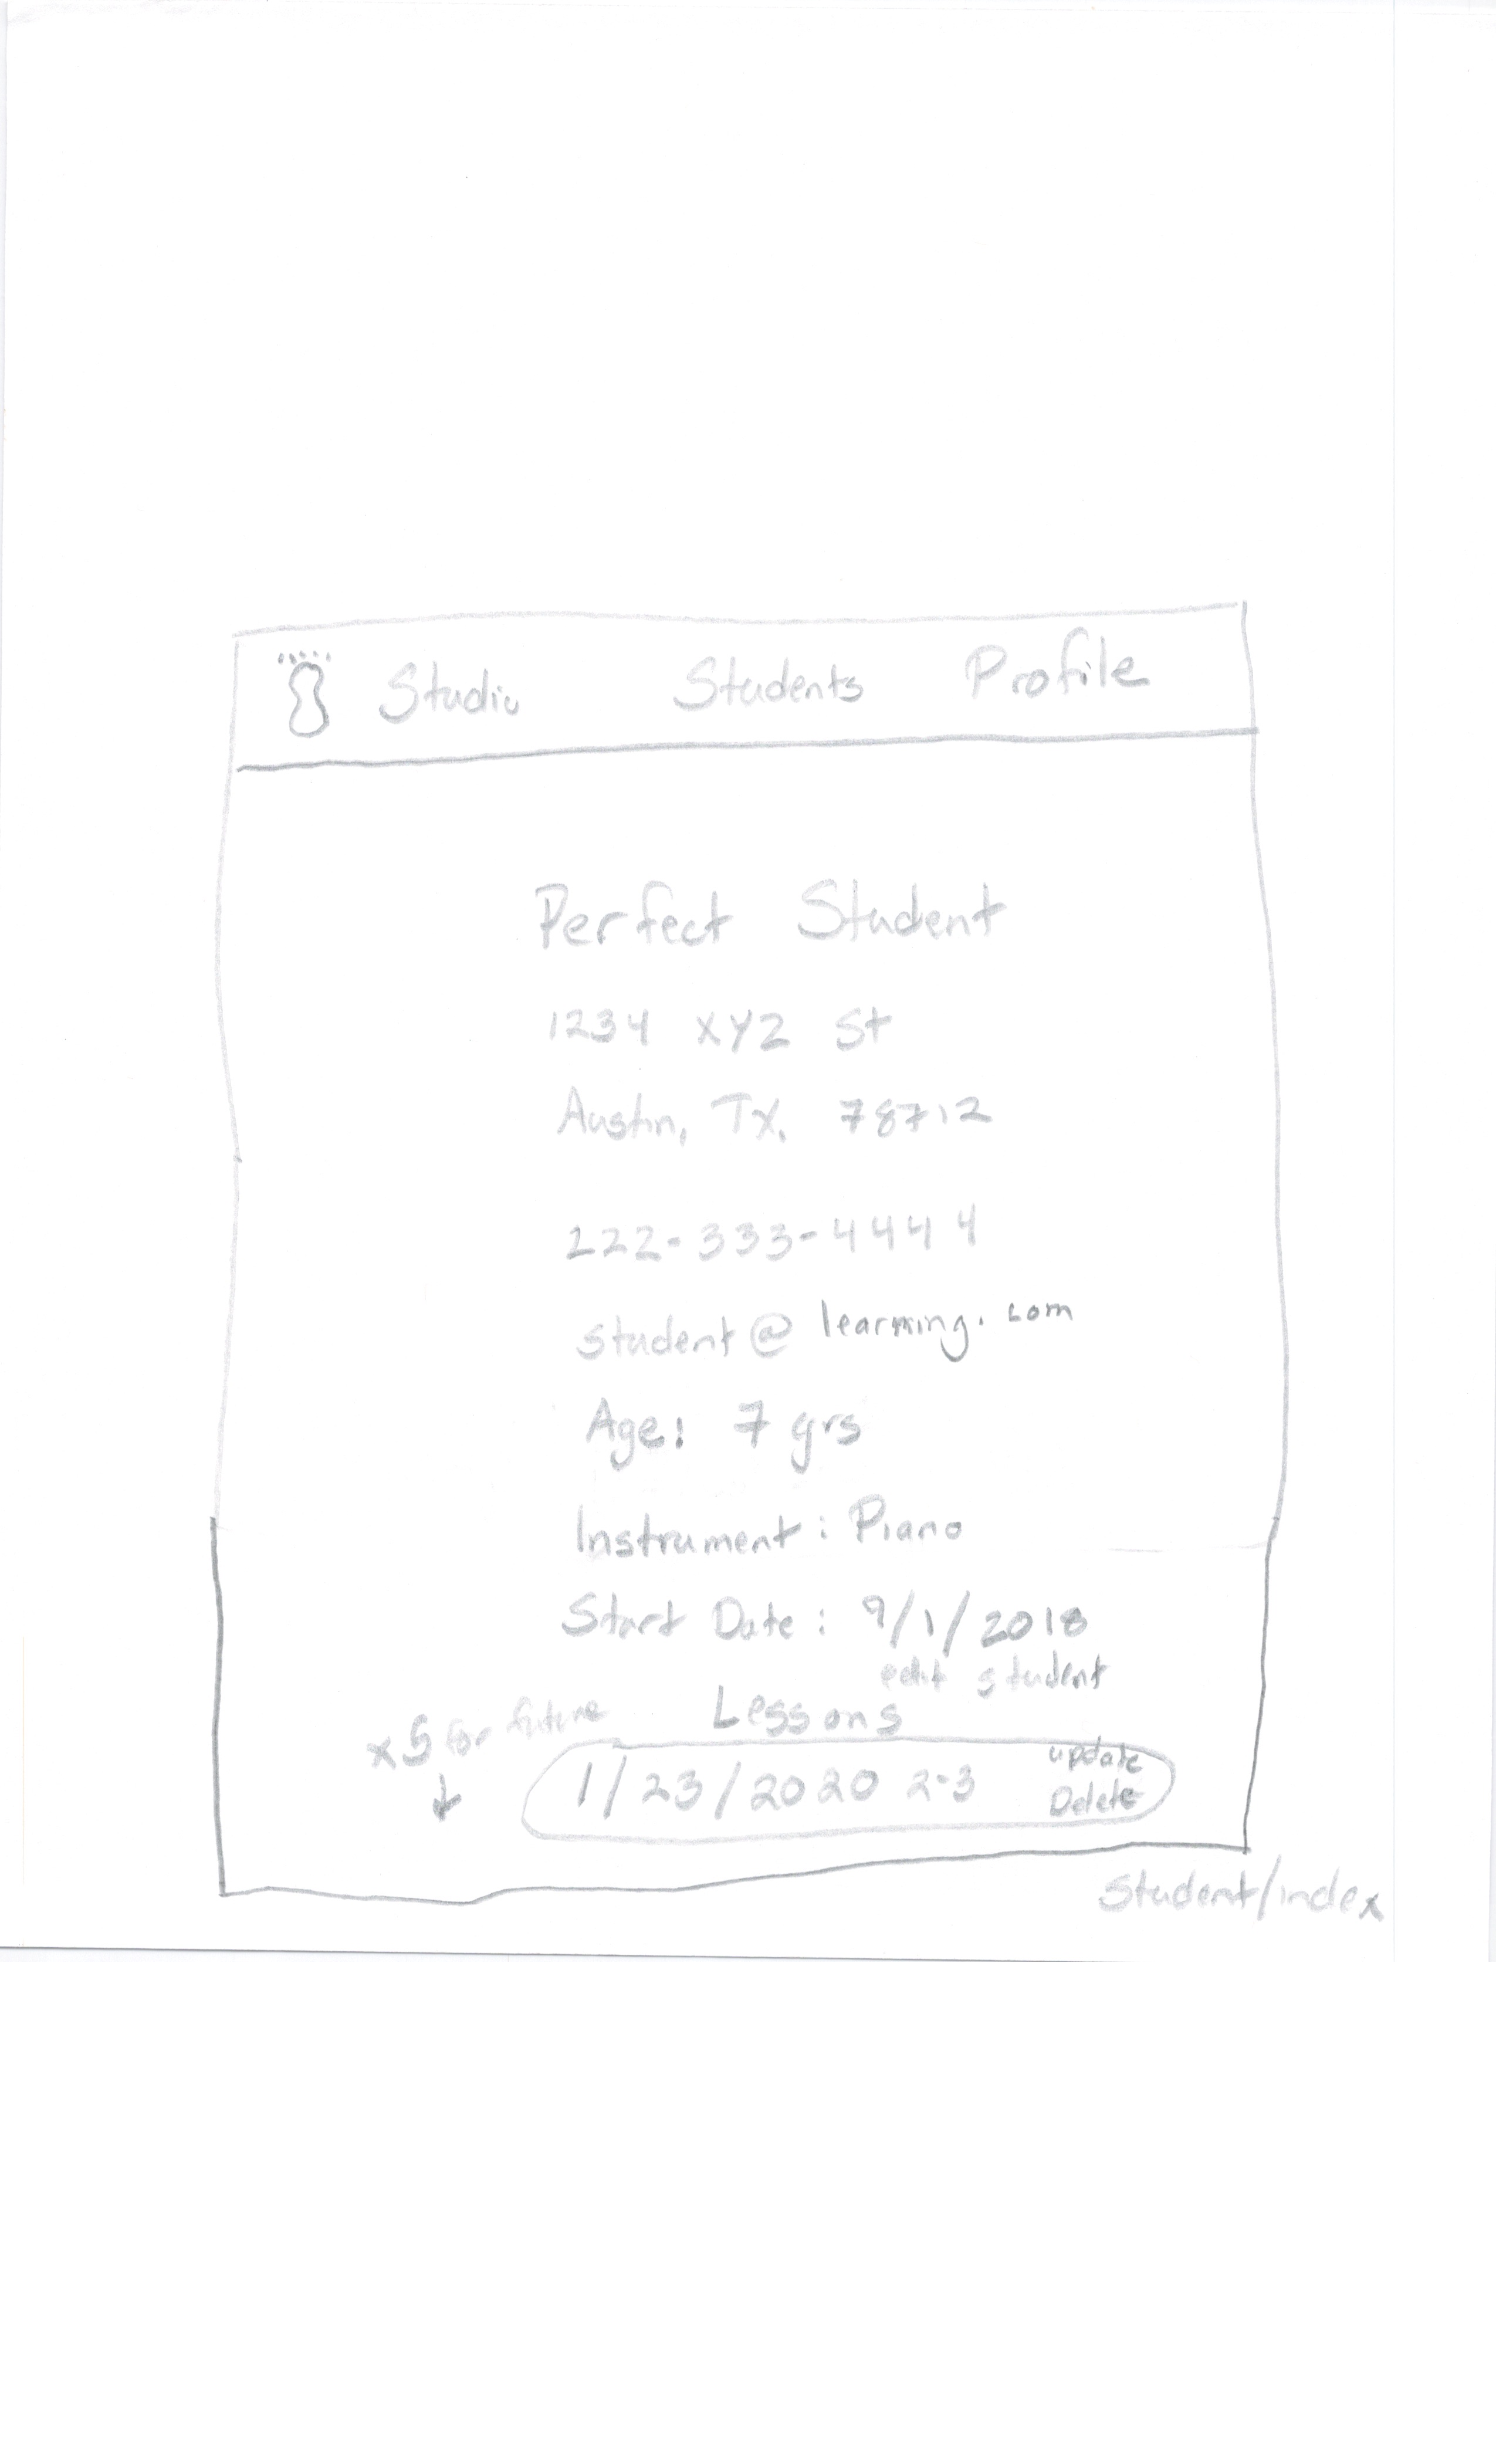 Studio Students Profile
Perfect Student
1234 XYZ St
Austin, TX, 78712
222-333-4444
student@learning.com
Age: 7 yrs
Instrument: Piano
Start Date: 9/1/2018
edit student
Lessons
x5 for future
↓
1/23/2020 2-3
update
Delete
student/index